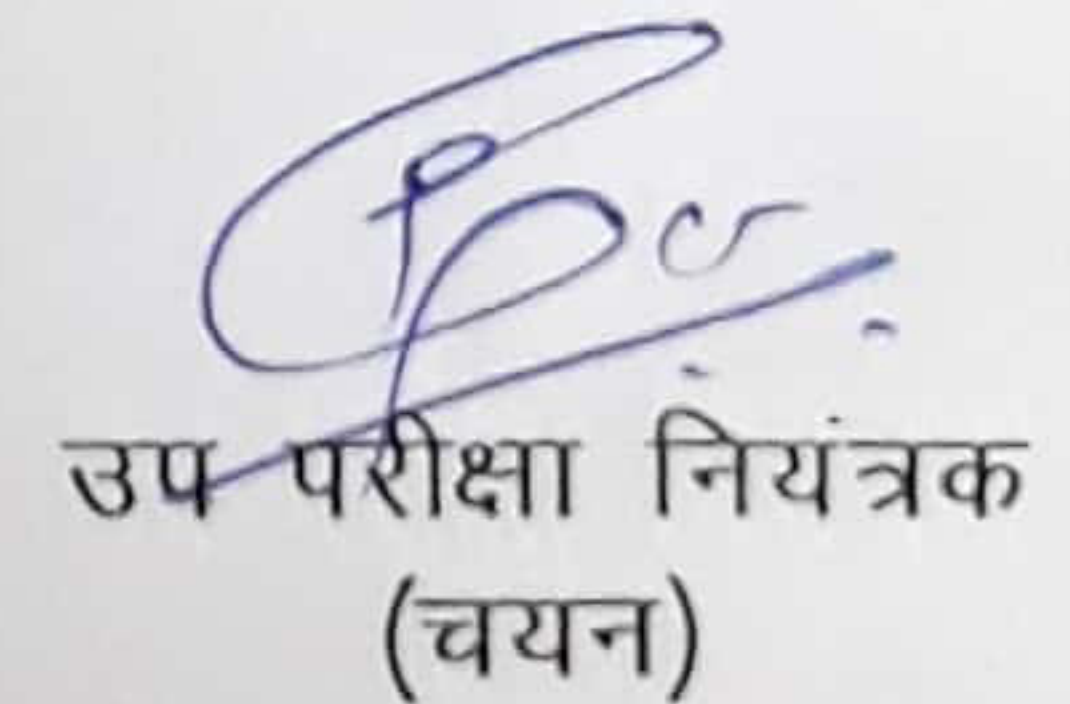 उप परीक्षा नियंत्रक
(चयन)